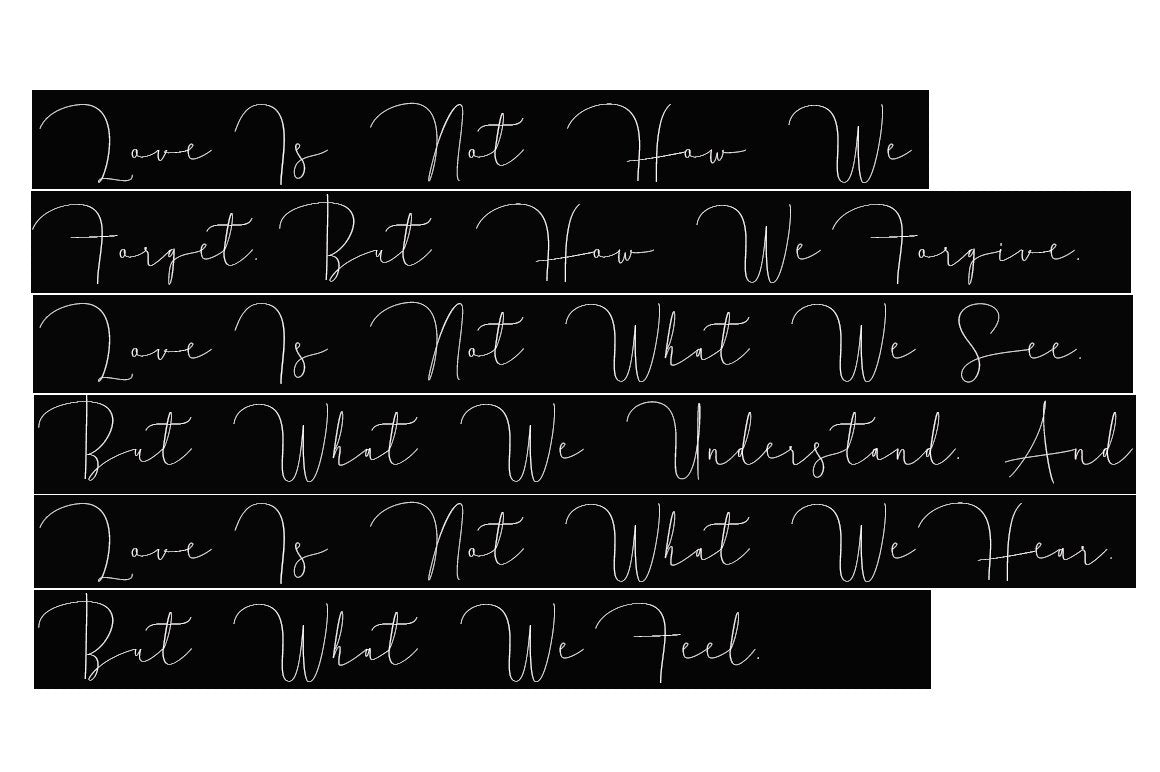 Love Is Not How We
Forget. But How We Forgive.
Love Is Not What We See.
But What We Understand. And
Love Is Not What We Hear.
But What We Feel.